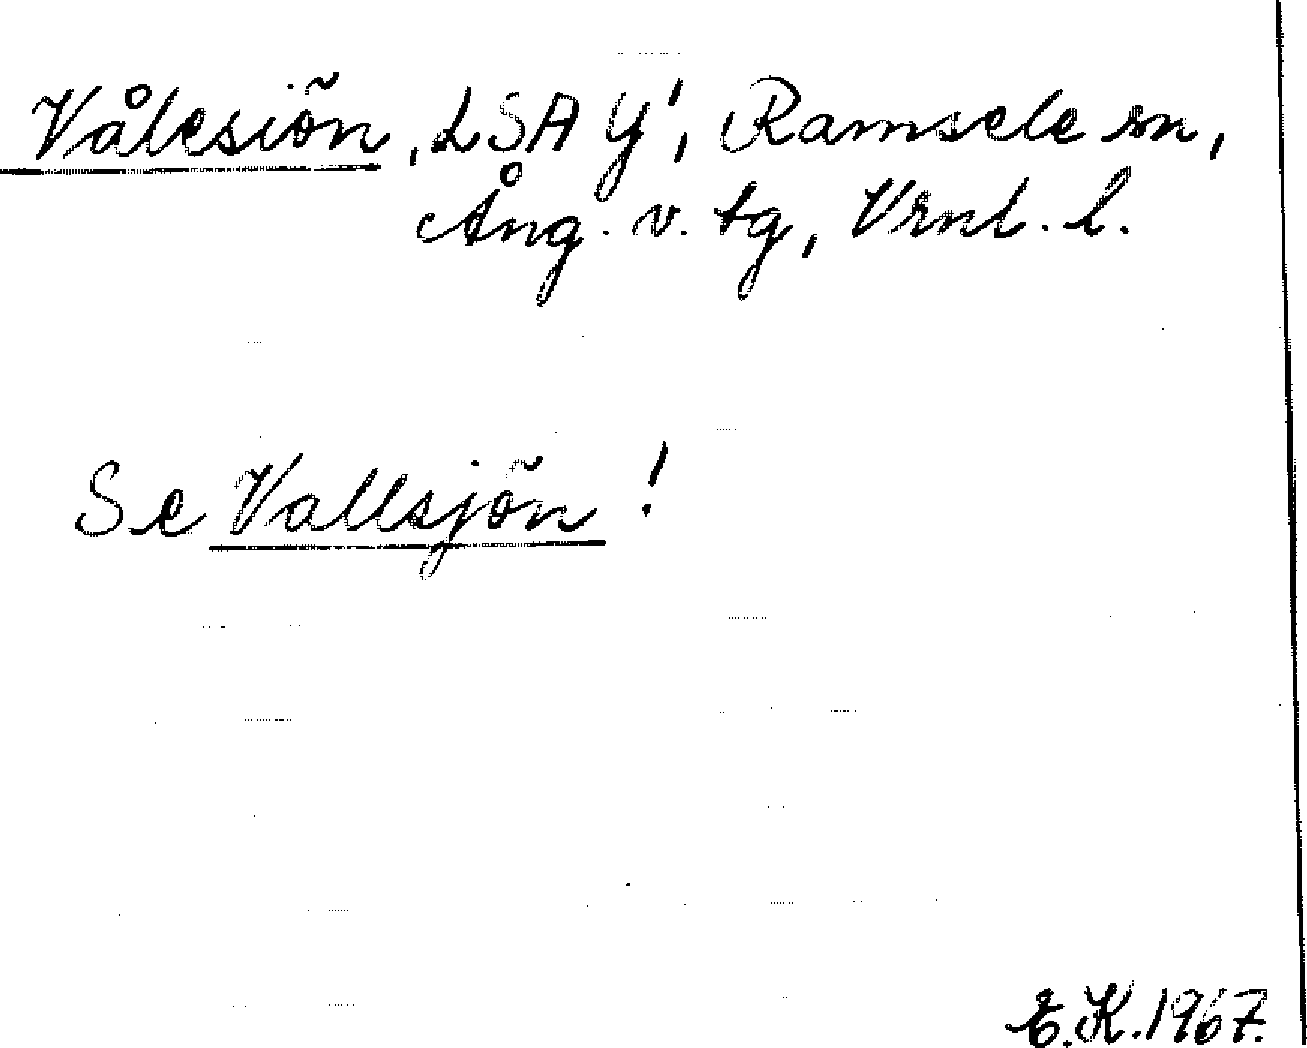 Vålesiön, LSA Y¹, Ramsele sn,
Ång. v. tg, Vrnl. l.
Se Vallsjön!
E.K. 1967.